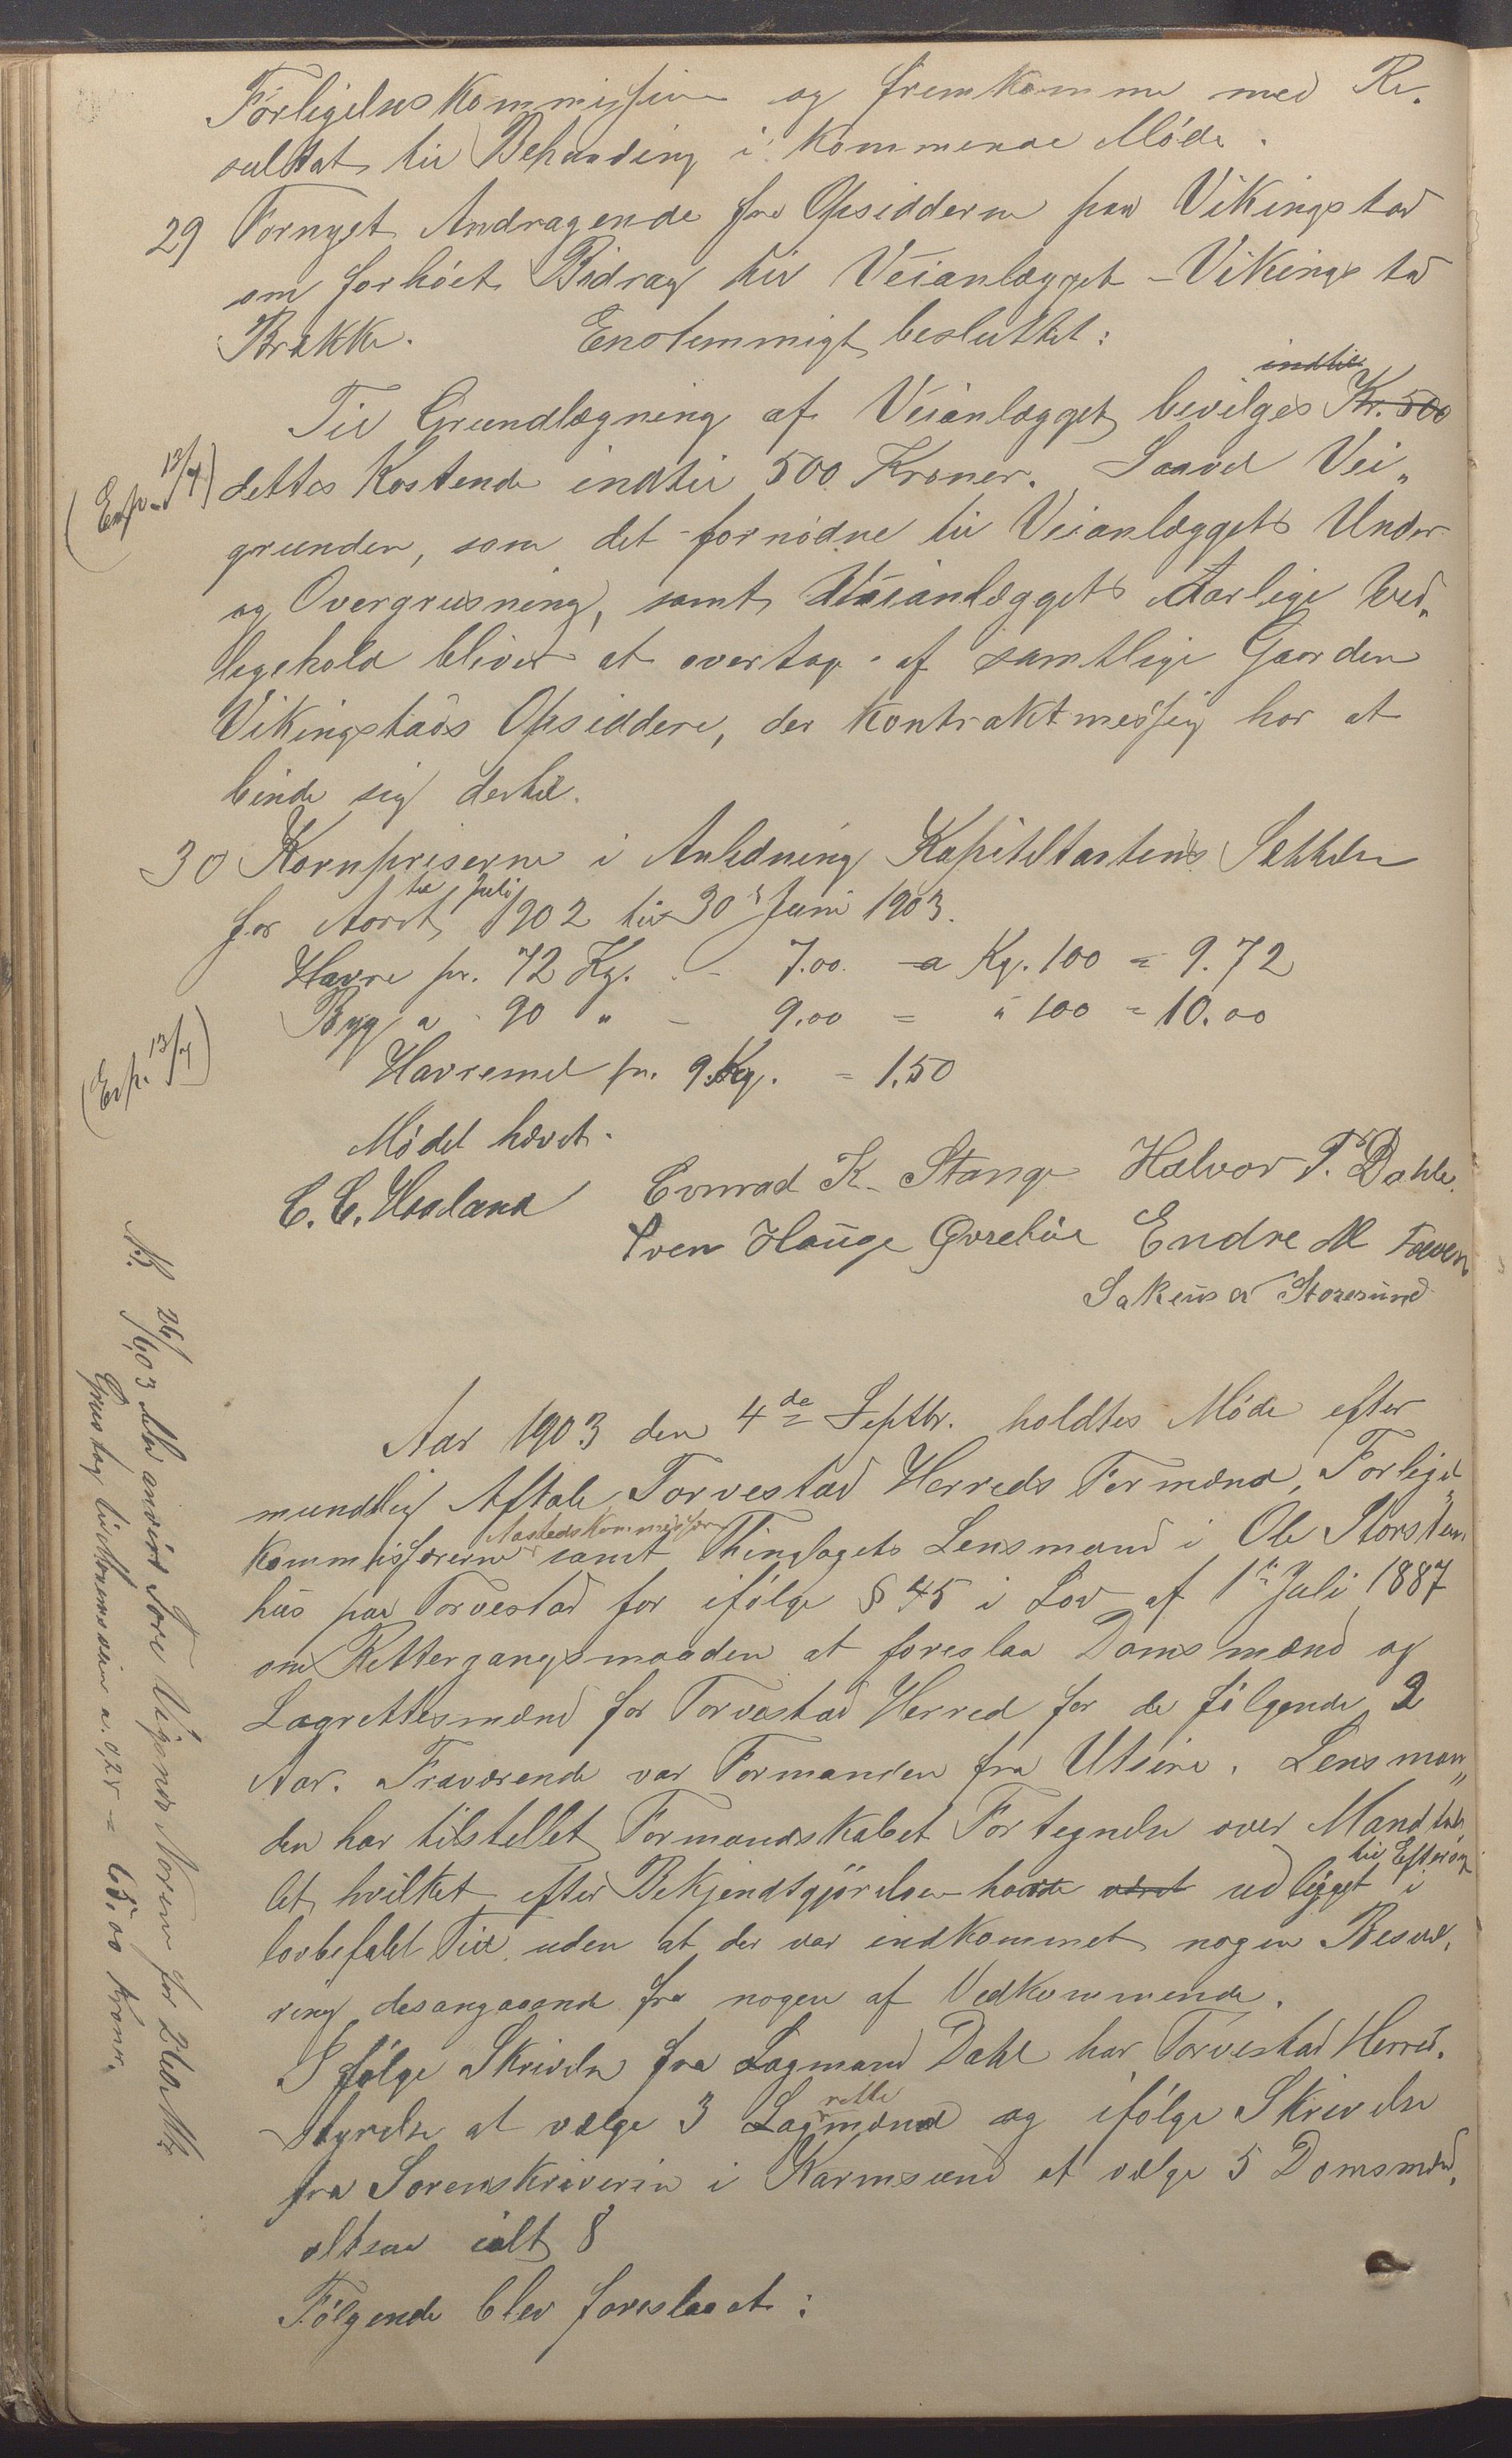 Forligelseskommission og fremkomme med Re-
sultat til Behandling i kommende Møde.
29 Fornyet Andragende fra Opsidderne paa Vikingstad
om forhøiet Bidrag til Veianlægget - Vikingstad
Brække. Enstemmigt besluttet:
indtil
Til Grundlægning af Veianlægget bevilges Kr. 500
(Exp. 13/7) dettes Kostende indtil 500 Kroner. Saavel Vei-
grunden, som det fornødne til Veianlæggets Under
og Overgrusning, samt Veianlæggets aarlige Ved-
ligehold bliver at overtage af samtlige Gaarden
Vikingstads Opsiddere, der kontraktmessig har at
binde sig dertil.
30 Kornpriserne i Anledning Kapiteltaxtens Sættelse
for Aaret 1te Juli 1902 til 30 Juni 1903.
Havre pr. 72 Kg. - 7.00 a Kg. 100 = 9.72
Byg a 90 " - 9.00 = " 100 = 10.00
(Exp. 13/7)
Havremel pr. 9 Kg. = 1.50
Mødet hævet.
C. C. Haaland Conrad K. Stange Halvor T. Dahle
Sven Hauge Øvrebøe Endre M Fæøen
Sakeus A Storesund
Aar 1903 den 4de Septbr. holdtes Møde efter
mundtlig Aftale, Torvestad Herreds Formænd, Forligs-
Aastedskommissær
kommissærerne samt Thinglagets Lensmand i Ole Storsteins
hus paa Torvestad for ifølge § 45 i Lov af 1te Juli 1887
om Rettergangsmaaden at foreslaa Domsmænd og
Lagrettesmænd for Torvestad Herred for de følgende 2
Aar. Fraværende var Formanden fra Utsire. Lensman-
den har tilstellet Formandskabet Fortegnelse over Mandtal-
til Eftersyn
let, hvilket efter Bekjendtgjørelsen havde været udligget i
lovbefalet Tid uden at der var indkommet nogen Besvæ-
ring desangaaende fra nogen af Vedkommende.
Ifølge Skrivelse fra Lagmand Dahl har Torvestad Herred-
styrelse at vælge 3 Lagrettemænd og ifølge Skrivelse
fra Sorenskriveren i Karmsund at vælge 5 Domsmænd,
altsaa ialt 8
Følgende blev foreslaaet:
No. 26/6 03 anvist Tore Norem for
Grustag til a. 0,25 = 65,00 Kroner.